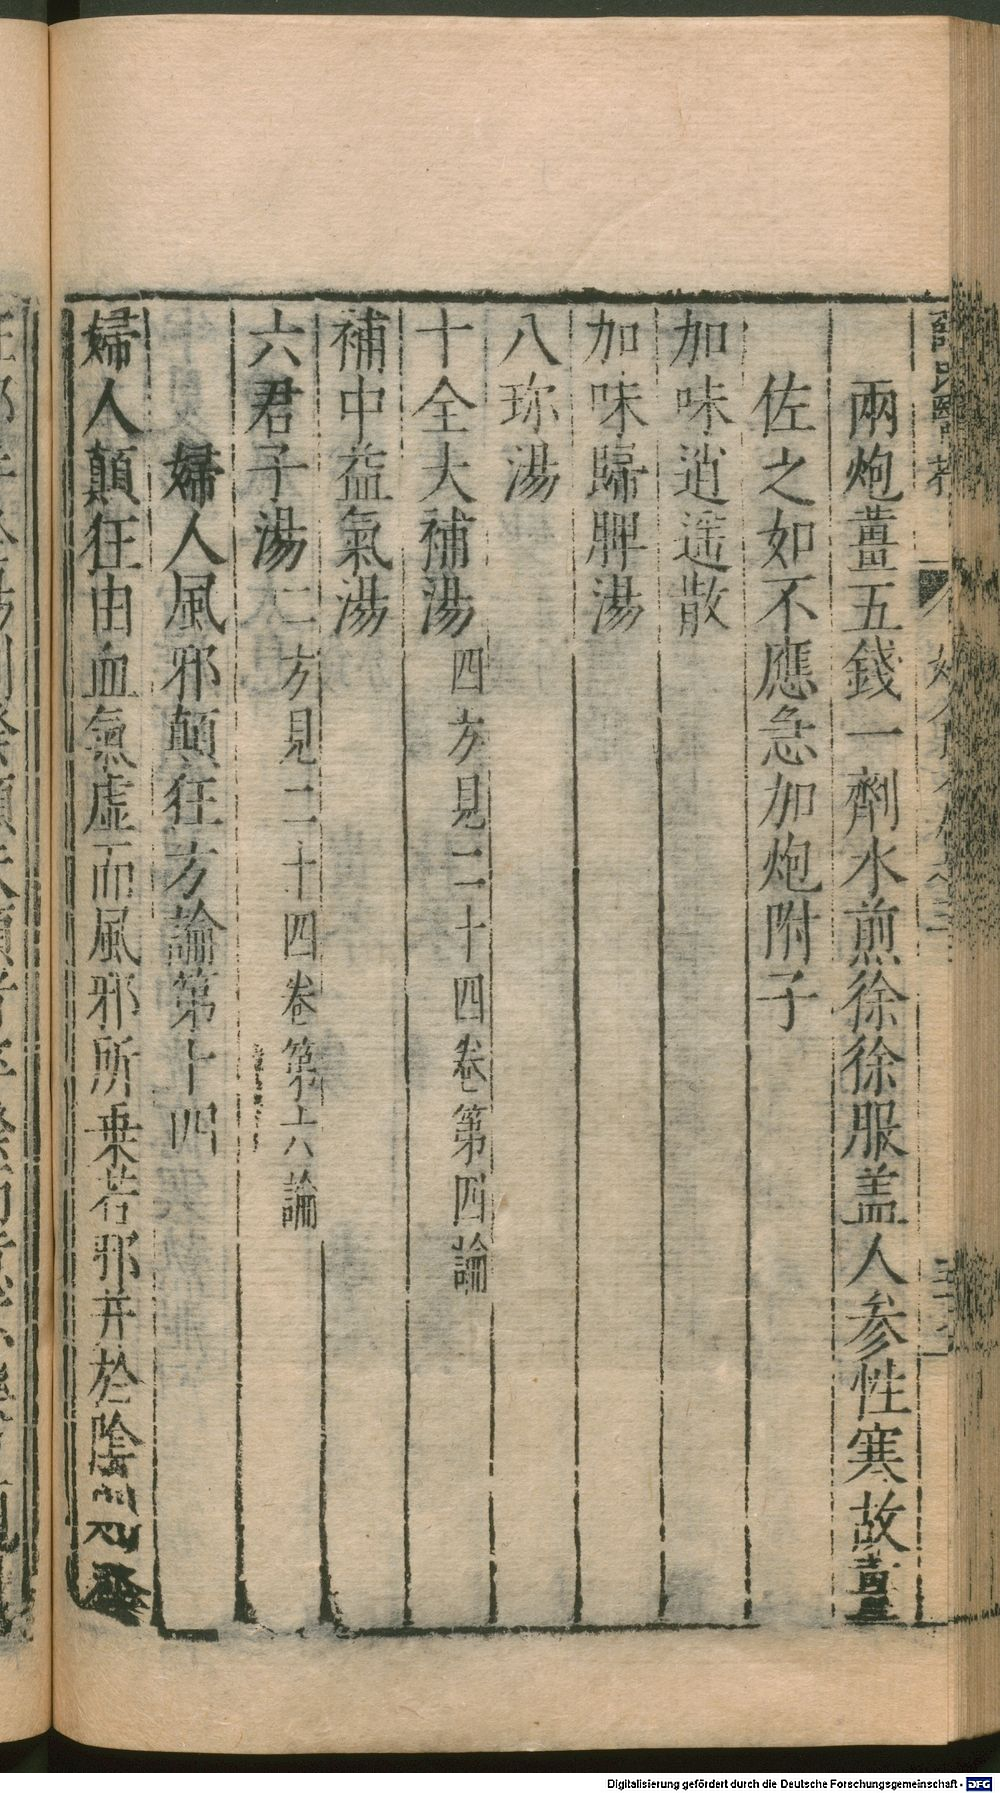 兩炮薑五錢一劑水煎徐徐服盖人参性寒故薑
佐之如不應急加炮附子
加味逍遥散
加味歸脾湯
八珎湯
十全大補湯四方見二十四卷第四論
補中益氣湯
六君子湯二方見二十四卷第六論
婦人風邪顛狂方論第十四
婦人顛狂由血氣虚而風邪所乗若邪并於陰
Digitalisierung gefördert durch die Deutsche Forschungsgemeinschaft - DFG